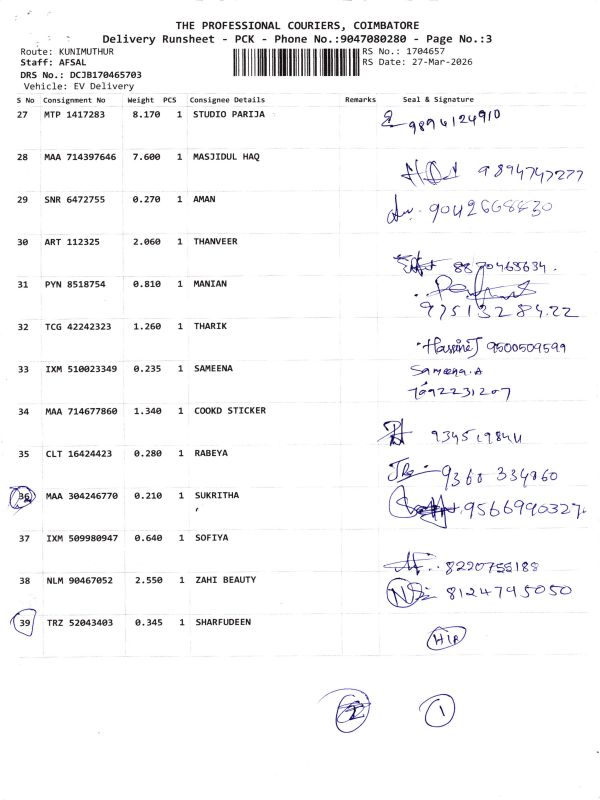 THE PROFESSIONAL COURIERS, COIMBATORE
Delivery Runsheet - PCK - Phone No.:9047080280 - Page No.:3
Route: KUNIMUTHUR
RS No.: 1704657
Staff: AFSAL
RS Date: 27-Mar-2026
DRS No.: DCJB170465703
Vehicle: EV Delivery
S No Consignment No Weight PCS Consignee Details Remarks Seal & Signature
27 MTP 1417283 8.170 1 STUDIO PARIJA
9894124910
28 MAA 714397646 7.600 1 MASJIDUL HAQ
9894747277
29 SNR 6472755 0.270 1 AMAN
9042668430
30 ART 112325 2.060 1 THANVEER
8870465634.
31 PYN 8518754 0.810 1 MANIAN
9751328422
32 TCG 42242323 1.260 1 THARIK
9500509599
33 IXM 510023349 0.235 1 SAMEENA
Sameena.A
7092231207
34 MAA 714677860 1.340 1 COOKD STICKER
35 CLT 16424423 0.280 1 RABEYA
9360 334060
36 MAA 304246770 0.210 1 SUKRITHA
,
9566990327
37 IXM 509980947 0.640 1 SOFIYA
8220755188
38 NLM 90467052 2.550 1 ZAHI BEAUTY
8124795050
39 TRZ 52043403 0.345 1 SHARFUDEEN
1